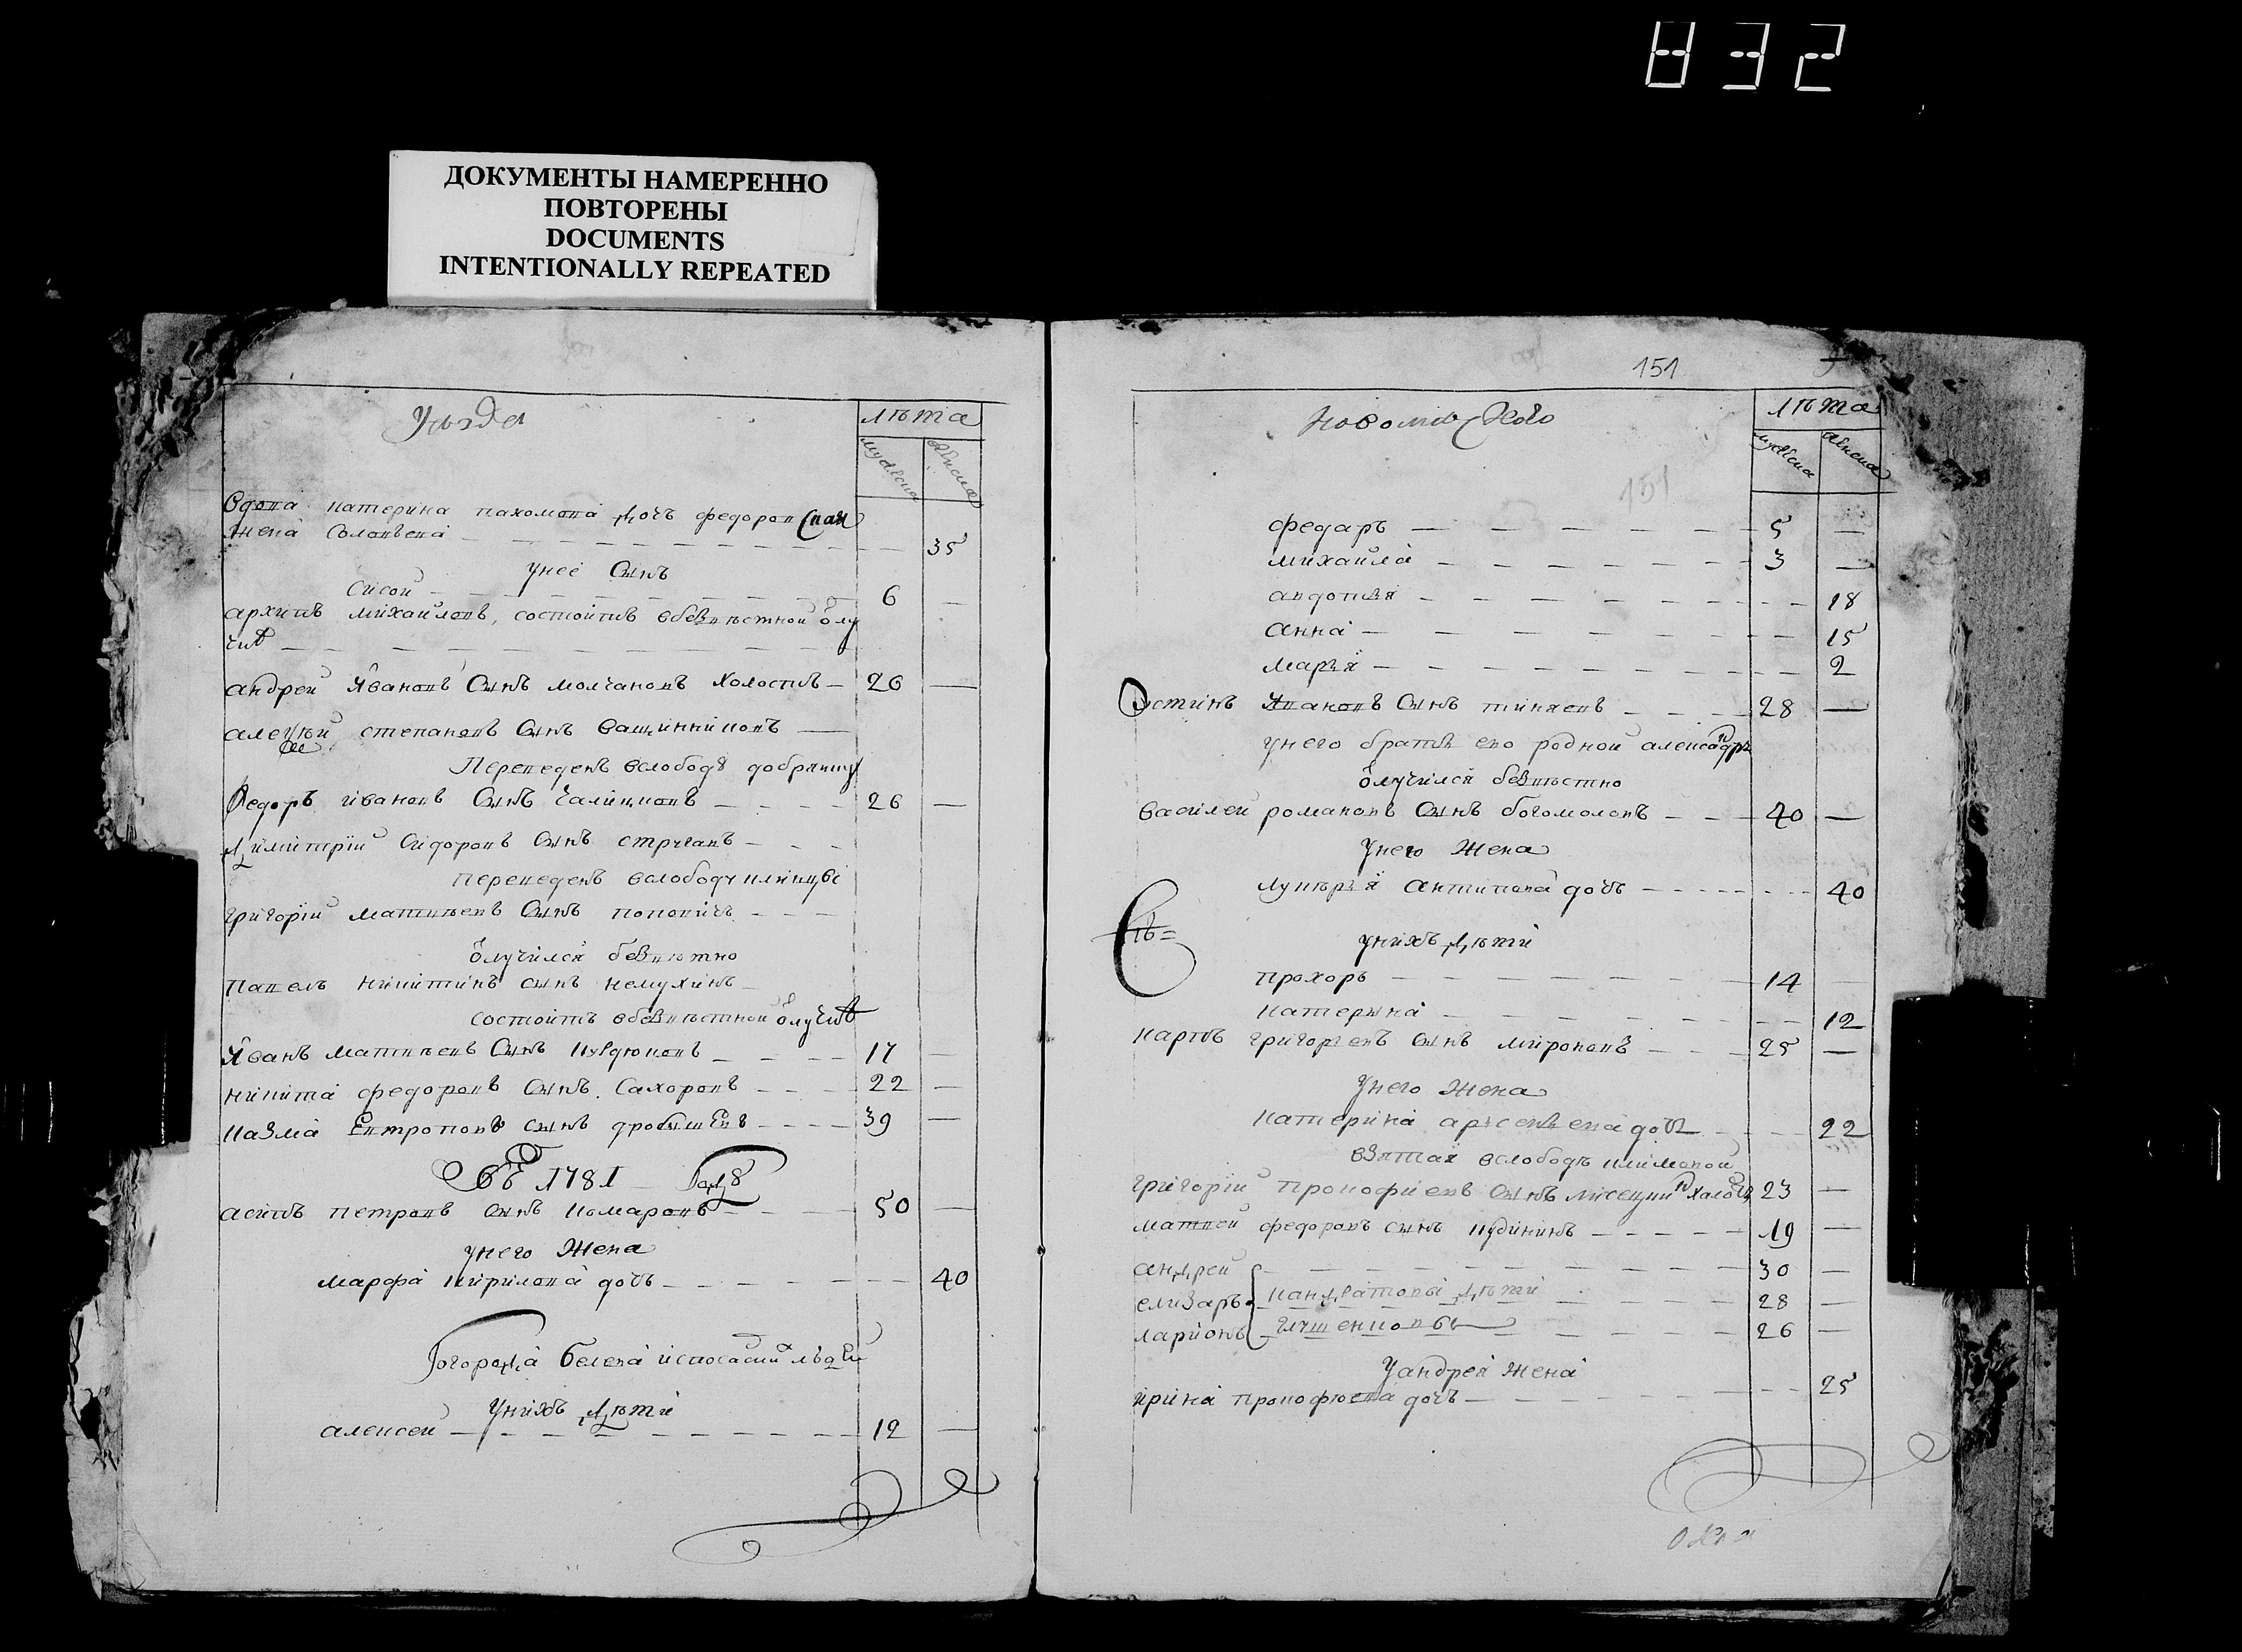 832
ДОКУМЕНТЫ НАМЕРЕННО
ПОВТОРЕНЫ
DOCUMENTS
INTENTIONALLY REPEATED
Уѣзда
лѣта
мужеска
женска
вдова катерина пахомова дочь федоровская
жена Соловьева 35
унее Сынъ
Сисой 6
архипъ михайловъ, состоитъ вбезвѣстной
андрей Ивановъ Сынъ молчановъ холостъ 26
алексѣй степановъ Сынъ
Переведенъ вслободу добрянку
Федоръ ивановъ Сынъ 26
Димитрій Сидоровъ Сынъ
переведенъ вслободу
григорій матвѣевъ Сынъ поповичь
ѿлучился безвѣстно
павелъ никитинъ сынъ немухинъ
состоитъ вбезвѣстной
Иванъ матвѣевъ Сынъ 17
никита федоровъ Сынъ Сахоровъ 22
казма Евтроповъ сынъ 39
Въ 1781 Году
асипъ петровъ Сынъ комаровъ 50
унего Жена
марфа кирилова дочь 40
унихъ Дѣти
алексей 12
151
новомѣсткого
лѣта
мужеска
женска
151
федаръ 5
михайла 3
авдотья 18
анна 15
марья 2
Устинъ Ивановъ Сынъ тиняевъ 28
унего братъ его родной александръ
ѿлучился безвѣстно
василей романовъ Сынъ богомоловъ 40
Унего Жена
лукѣрья антипова дочь 40
унихъ Дѣти
прохоръ 14
катерына 12
карпъ григорьевъ Сынъ мироновъ 25
Унего Жена
катерина арьсеньева дочь 22
взятая вслободѣ климовой
григорій прокофиевъ Сынъ 23
матвей федоровъ сынъ кудининъ 19
андрей 30
елизаръ кандратовы Дѣти 28
ларионъ глушенковы 26
Уандрея Жена
ирина прокофьева дочь 25